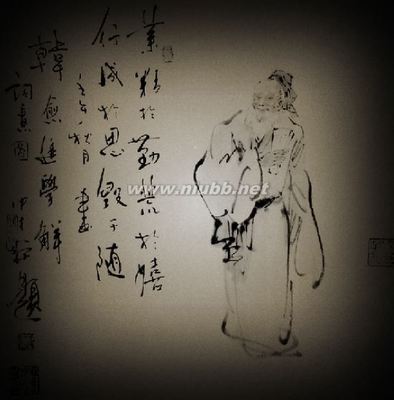 業精於勤荒於嬉
行成於思毀于随
秋月
韓愈進學解
意圖
題
www.niubb.net